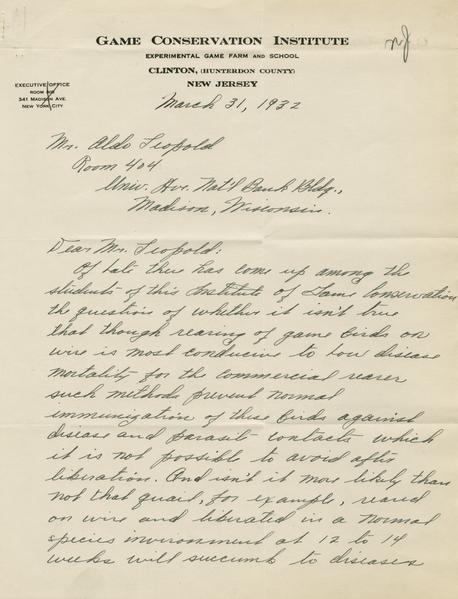 NJ
GAME CONSERVATION INSTITUTE
EXPERIMENTAL GAME FARM AND SCHOOL
CLINTON, (HUNTERDON COUNTY)
NEW JERSEY
EXECUTIVE OFFICE
ROOM
341 MADISON AVE.
NEW YORK CITY
March 31, 1932
Mr. Aldo Leopold
Room 404
Univ. Ave. Nat'l Bank Bldg.,
Madison, Wisconsin.
Dear Mr. Leopold:
Of late there has come up among the
students of this Institute of Game Conservation
the question of whether it isn't true
that though rearing of game birds on
wire is most conducive to low disease
mortality for the commercial rearer
such methods prevent normal
immunization of these birds against
disease and parasit contacts which
it is not possible to avoid after
liberation. And isn't it more likely than
not that quail, for example, reared
on wire and liberated in a normal
species invironment at 12 to 14
weeks will succumb to diseases